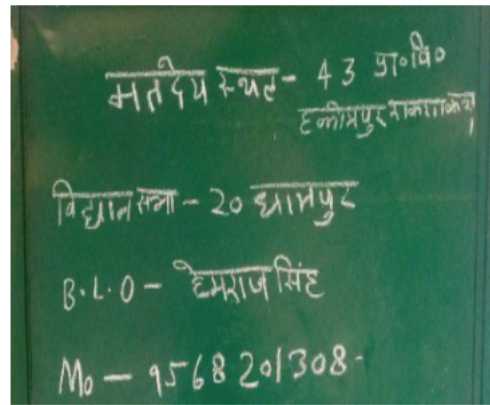 मतदेय स्थल - 43 प्रा॰वि॰
हकीमपुर
विधान सभा - 20 धामपुर
B.L.O - हेमराज सिंह
Mo - 9568201308-